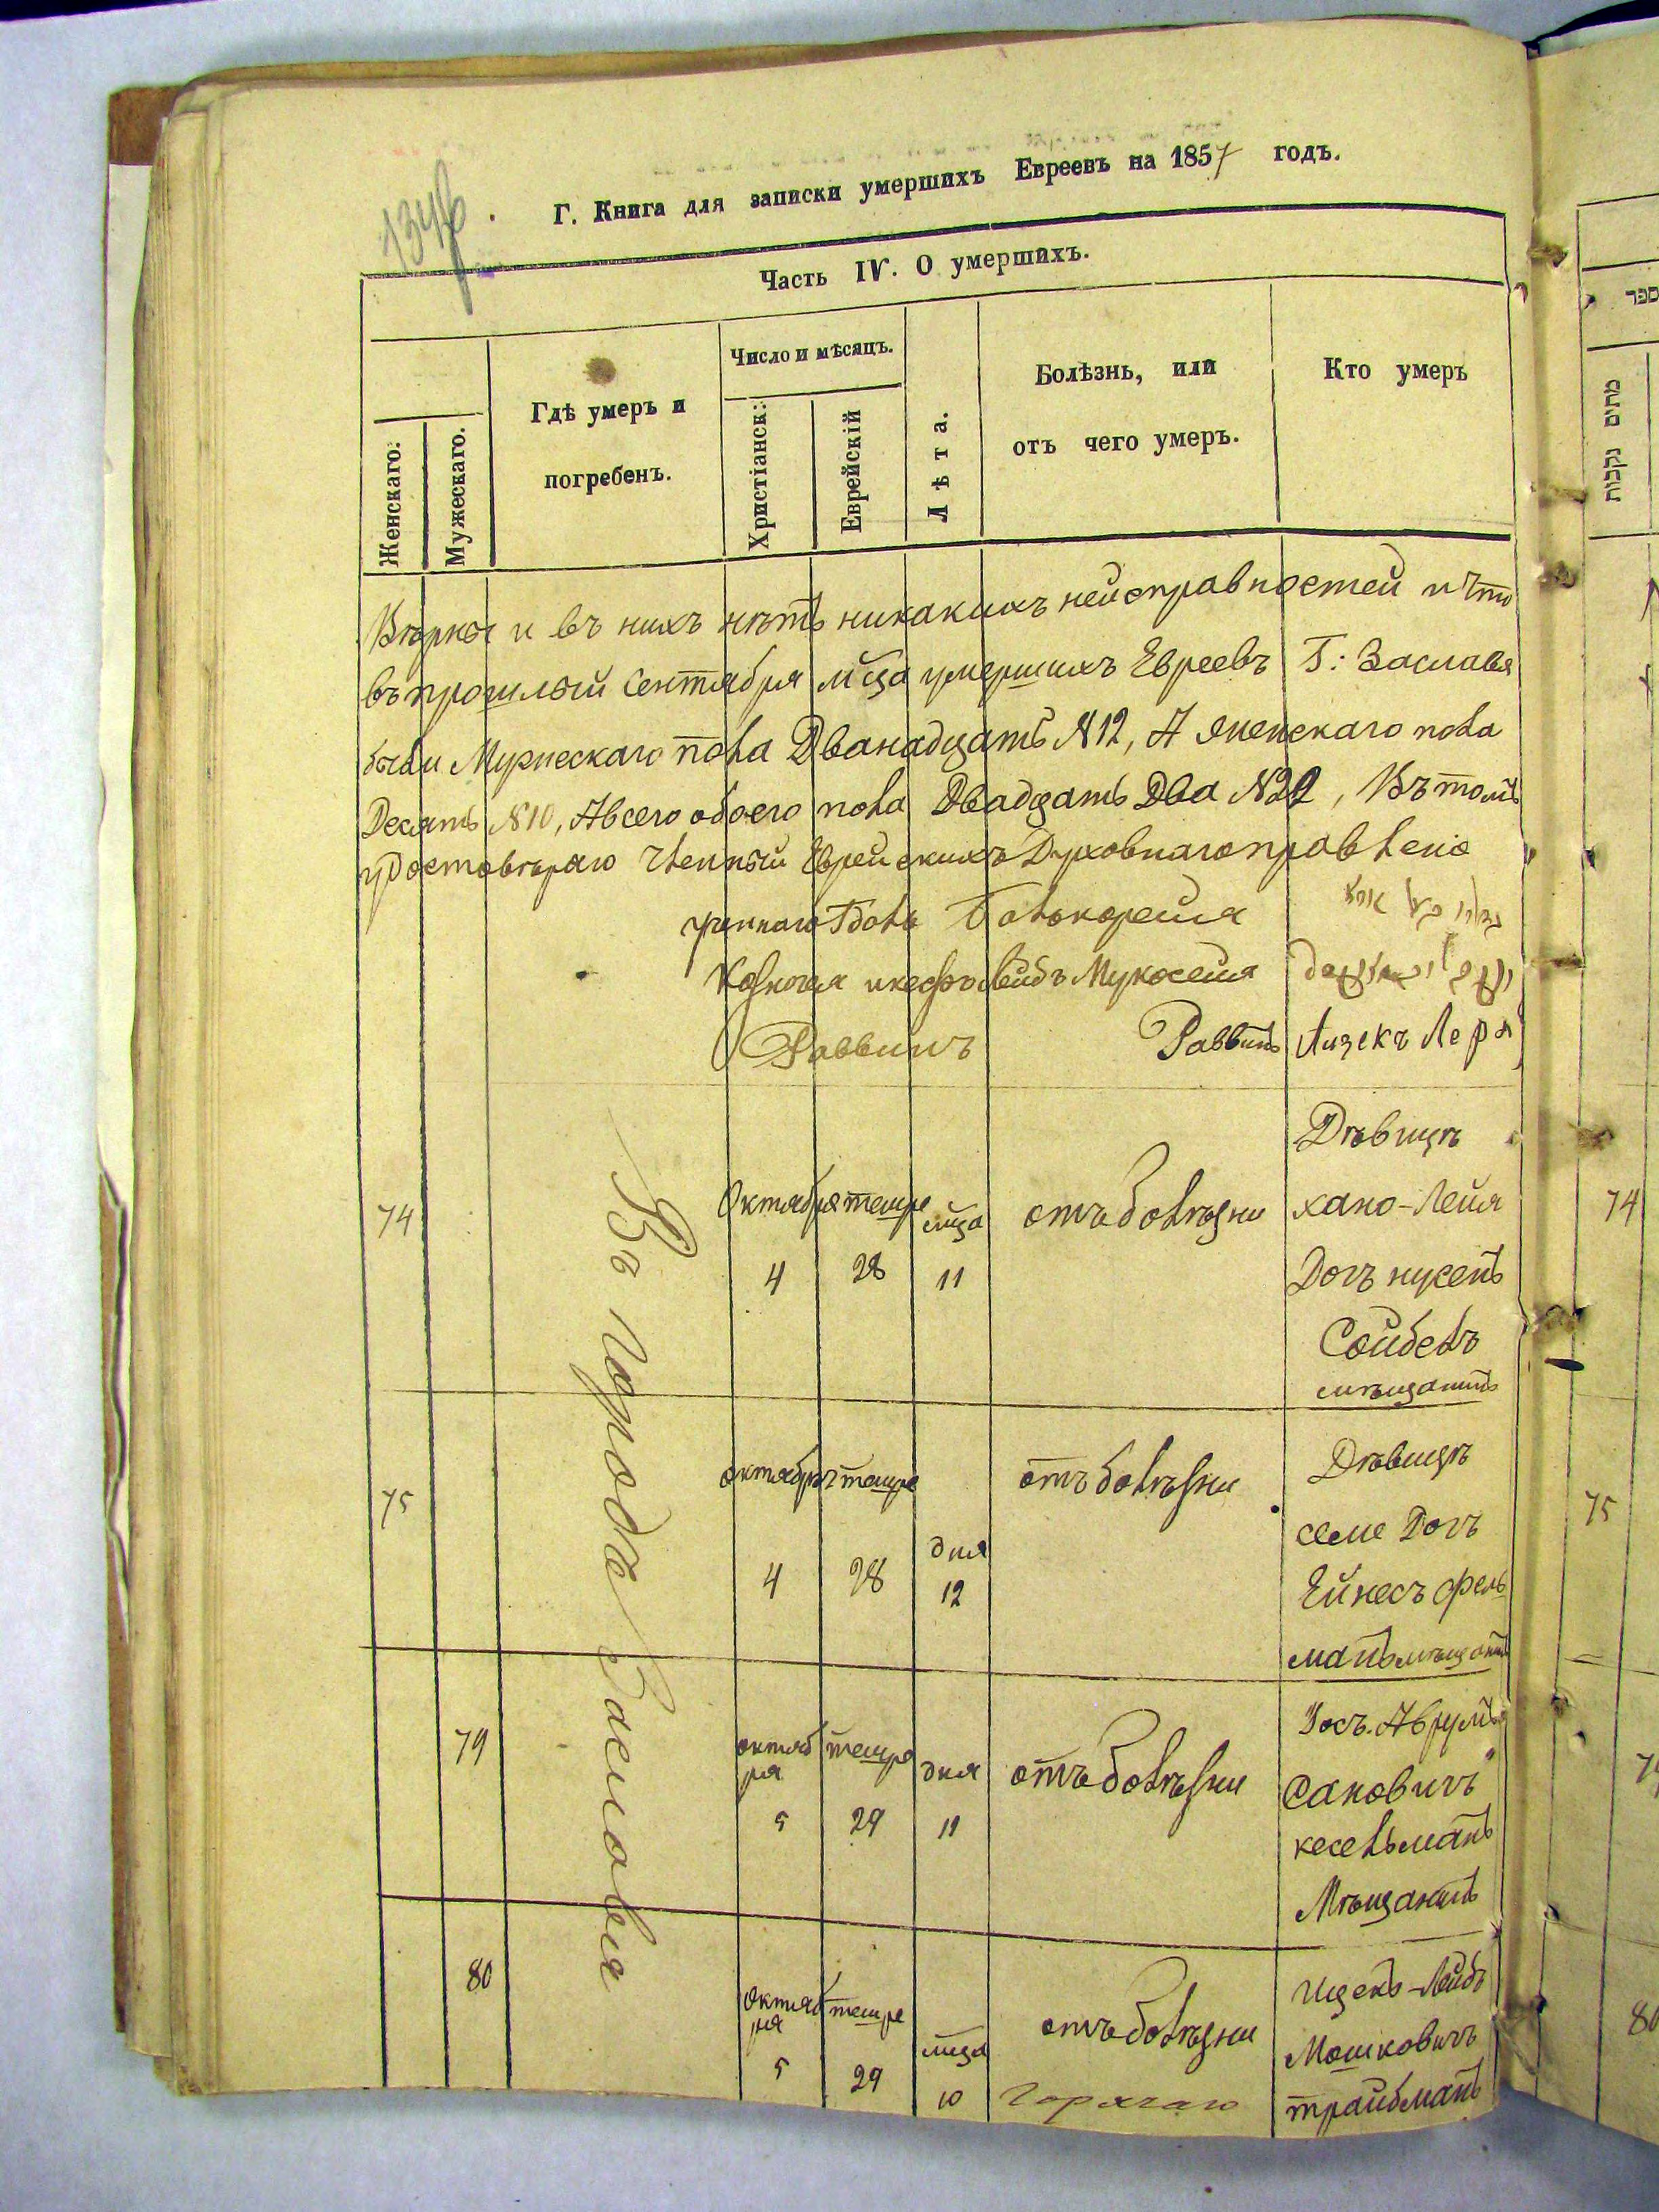 1346
Г. Книга для записки умершихъ Евреевъ на 1857 годъ.
Часть IV. О умершихъ.
Женскаго.
Мужескаго.
Гдѣ умеръ и
погребенъ.
Число и мѣсяцъ.
Христіанск:
Еврейскій
Лѣта.
Болѣзнь, или
отъ чего умеръ.
Кто умеръ
Вѣрны и въ нихъ нѣтъ никакихъ неисправностей и что
въ прошлый Сентября мца умершихъ Евреевъ Г: Заславя
были Мужескаго пола Дванадцать №12, А женскаго пола
Десять №10, Авсего обоего пола Двадцать Два №22, Въ томъ
удостовѣраю Члены Еврейскихъ Духовнаго правленіе
Раввинъ
Раввинъ Айзекъ Лерн
Въ Городе Заславля
74
Октября тешре мца
4 28 11
отъ болѣзни
Дѣвица
хано-Лейя
Дочъ нусенъ
Сойбель
мѣщанинъ
75
октября тешре
4 28
дня
12
отъ болѣзни
Дѣвица
семе Дочъ
Ейнесъ фель
манъ мѣщанинъ
79
октяб
ря
тешре дня
5 29 11
отъ болѣзни
Іосъ. Аврумъ
Сановичъ
кесельманъ
Мѣщанинъ
80
октяб
ря
тешре
мца
5 29 10
отъ болѣзни
Горячаю
Ицекъ-Лейбъ
Мошковичъ
трайбманъ
ספר
מתים
נקבות
74
75
80